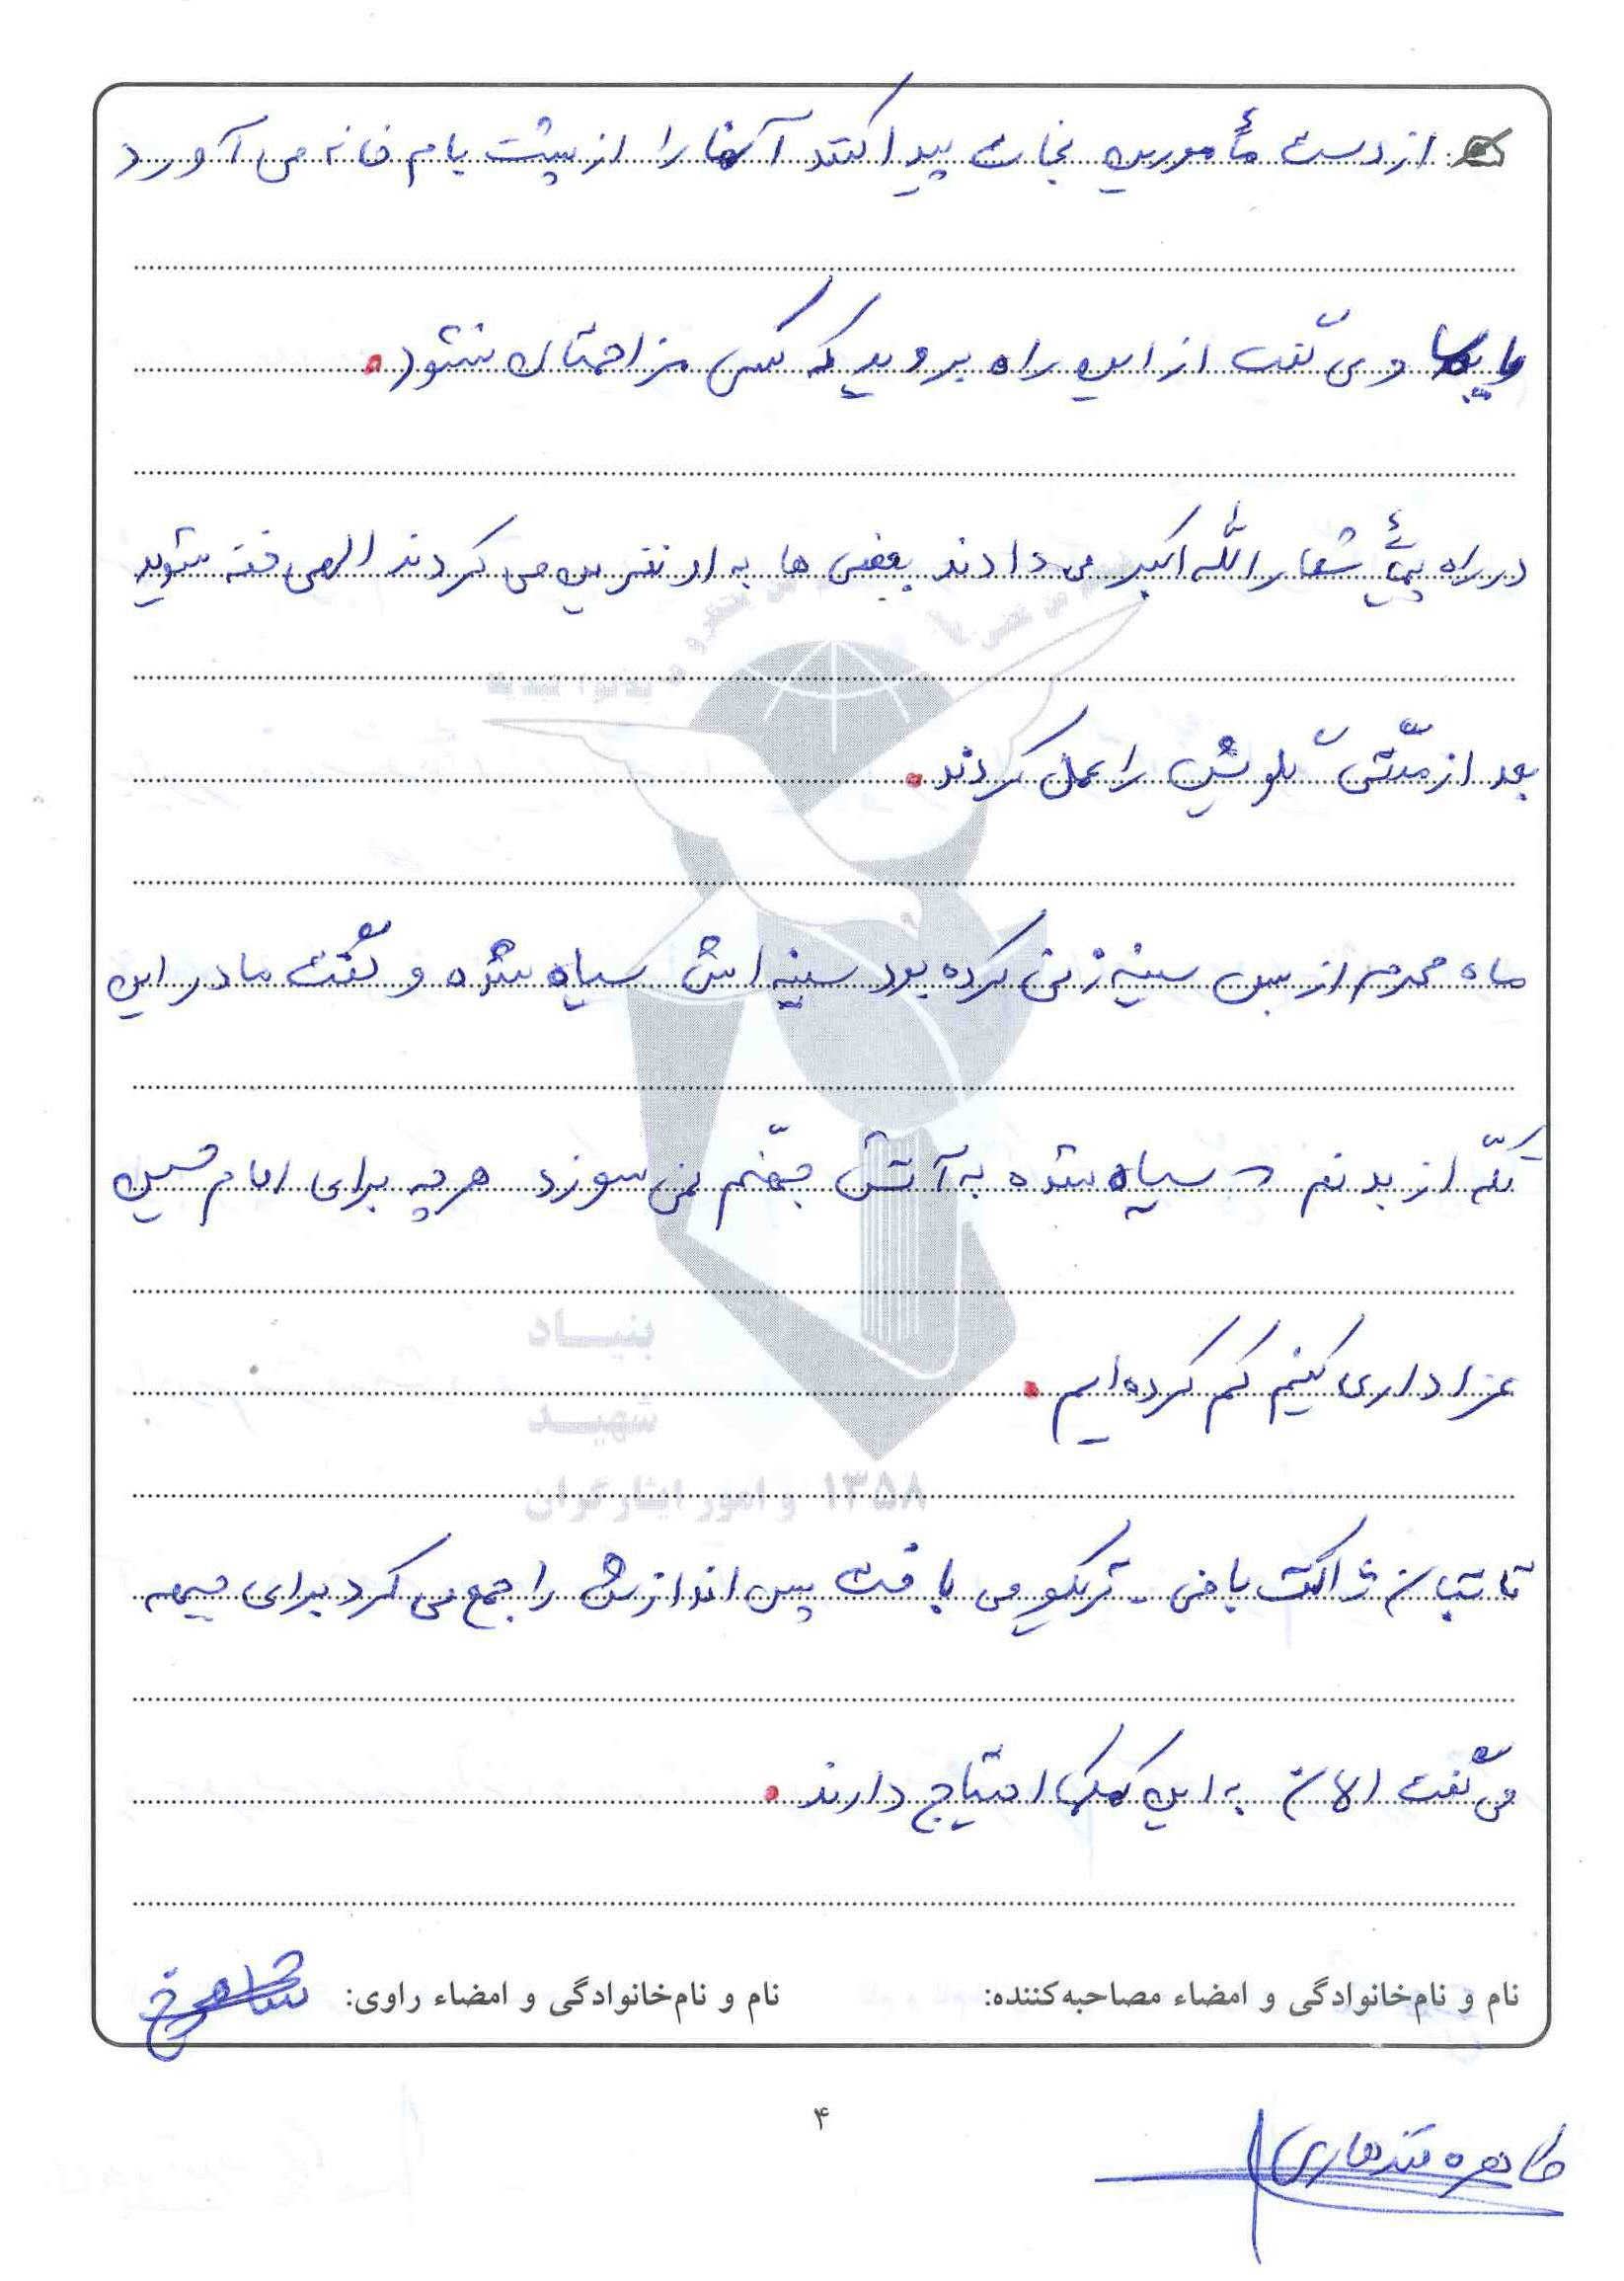 از دست مأمورین نجات پیدا کنند آنها را از پشت بام خانه می آورد
و می گفت از این راه بروید که کسی مزاحمتان نشود.
در راه پیمائی شعار الله اکبر می دادند بعضی ها به او نفرین می کردند الهی خفه شوید
بعد از مدتی گلویش را عمل کردند.
ماه محرم از بس سینه زنی کرده بود سینه اش سیاه شده و گفت مادر این
تکه از بدنم سیاه شده به آتش جهنم نمی سوزد هرچه برای امام حسین
عزاداری کنیم کم کرده ایم.
تابستان ژاکت بافی - تریکو می بافت پس اندازش را جمع می کرد برای جبهه
می گفت الان به این کمک احتیاج دارند.
بنیاد
شهید
و امور ایثارگران ۱۳۵۸
نام و نام‌خانوادگی و امضاء مصاحبه‌کننده: نام و نام‌خانوادگی و امضاء راوی: شاهرخ
۴
طاهره قندهاری